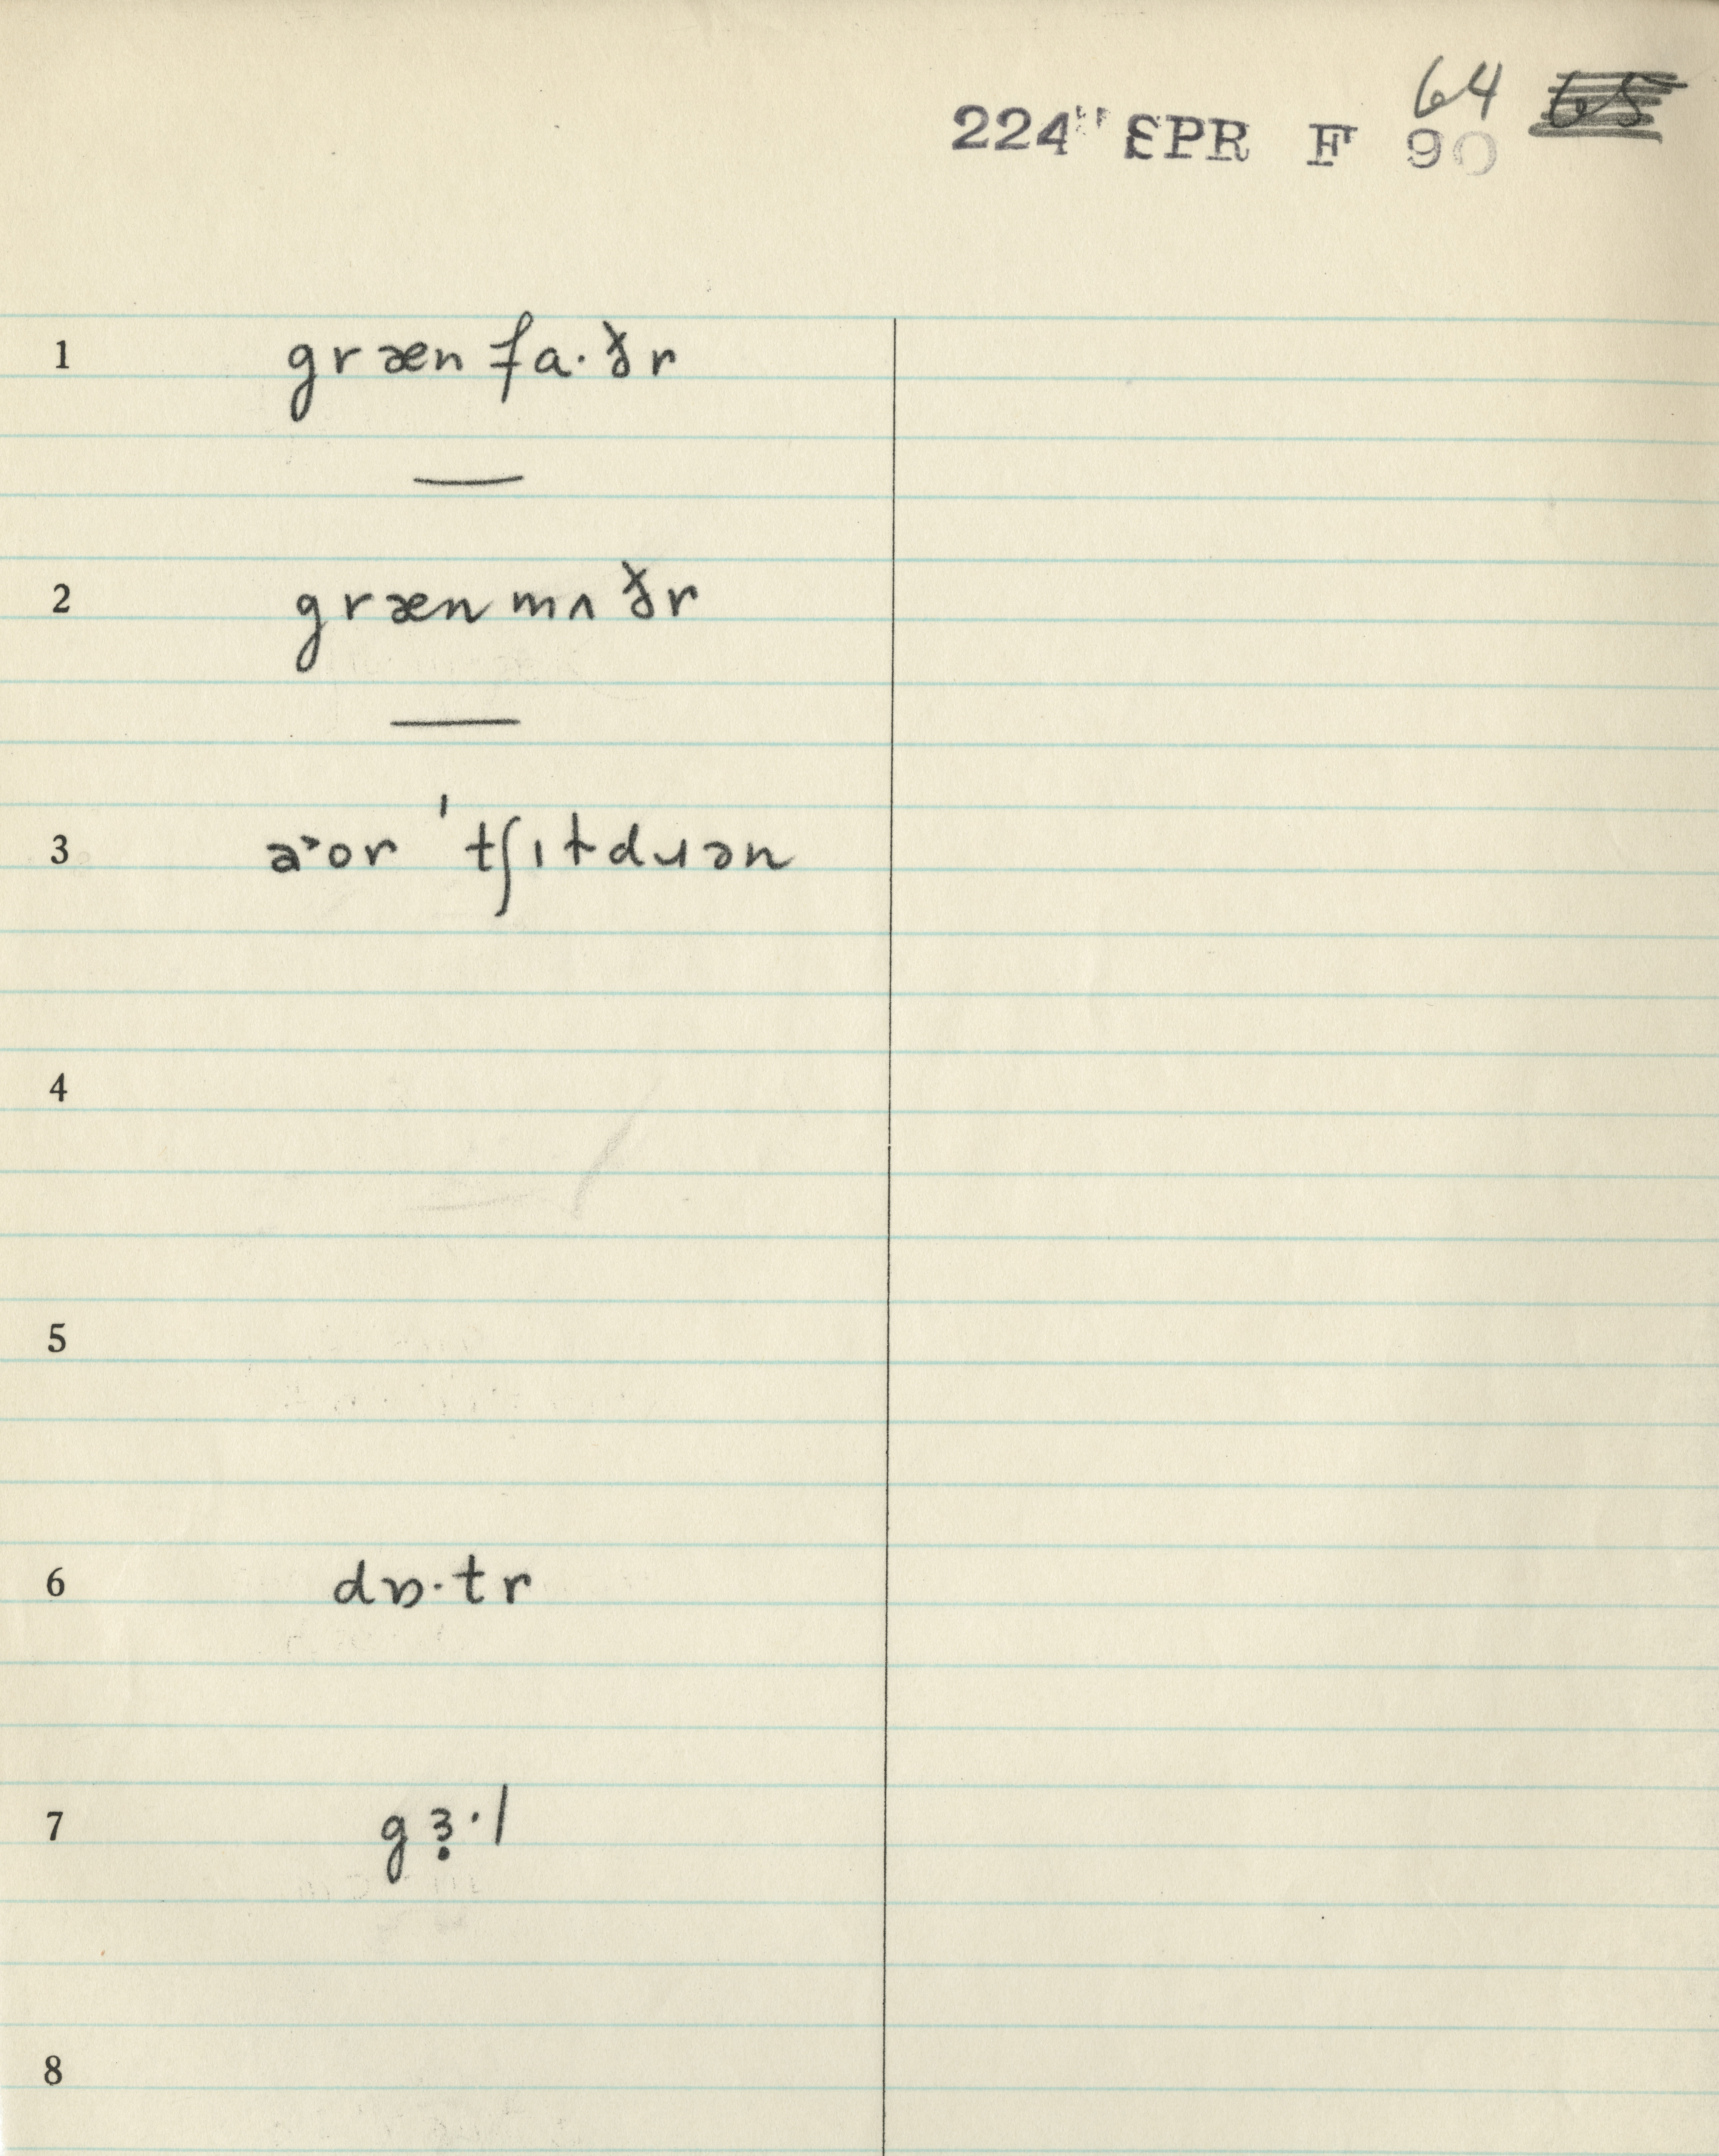 64 65
224" SPR F 90
1 græn fa·ðr
—
2 græn mʌ ðr
—
3 a˃or ˈtʃɪɫdɹən
4
5
6 dɒ·tr
7 gɜ̣·l
8